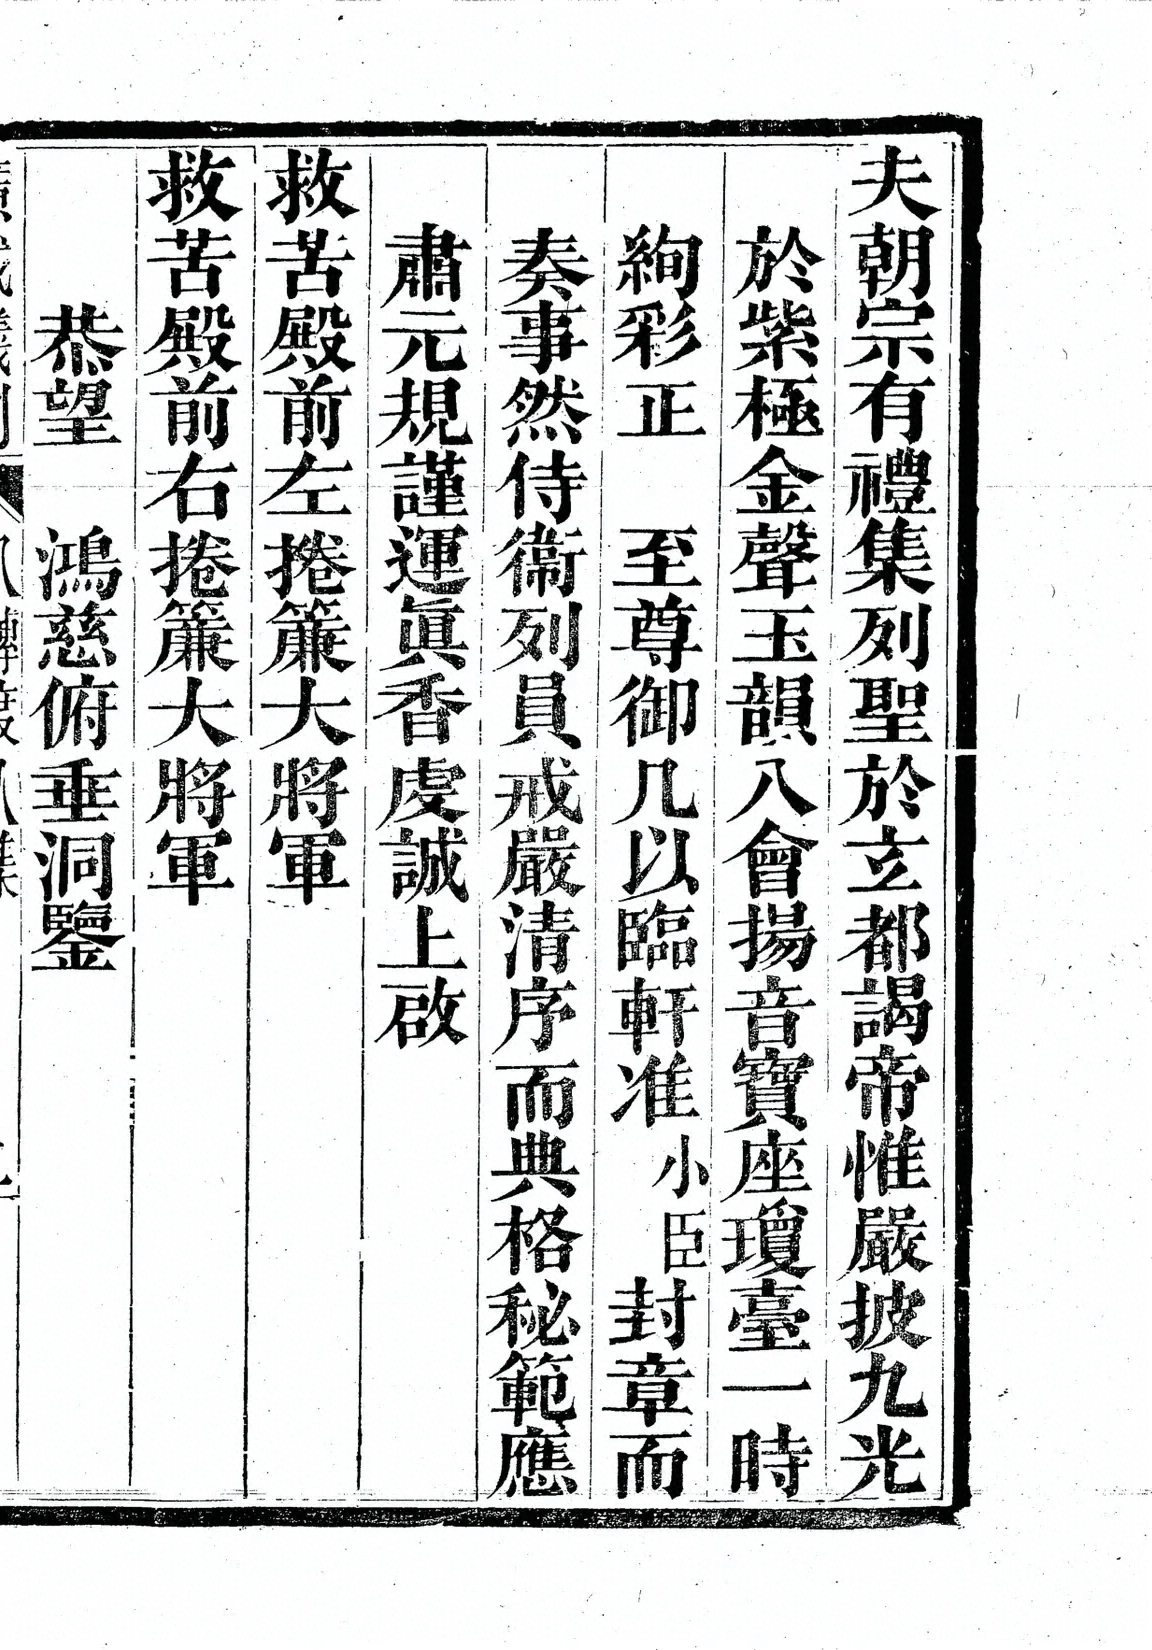 夫朝宗有禮集列聖於立都謁帝惟嚴披九光
於紫極金聲玉韻八會揚音寶座瓊臺一時
絢彩正　至尊御几以臨軒准小臣封章而
奏事然侍衞列員戒嚴清序而典格秘範應
肅元規謹運眞香虔誠上啟
救苦殿前左捲簾大將軍
救苦殿前右捲簾大將軍
恭望　鴻慈俯垂洞鑒